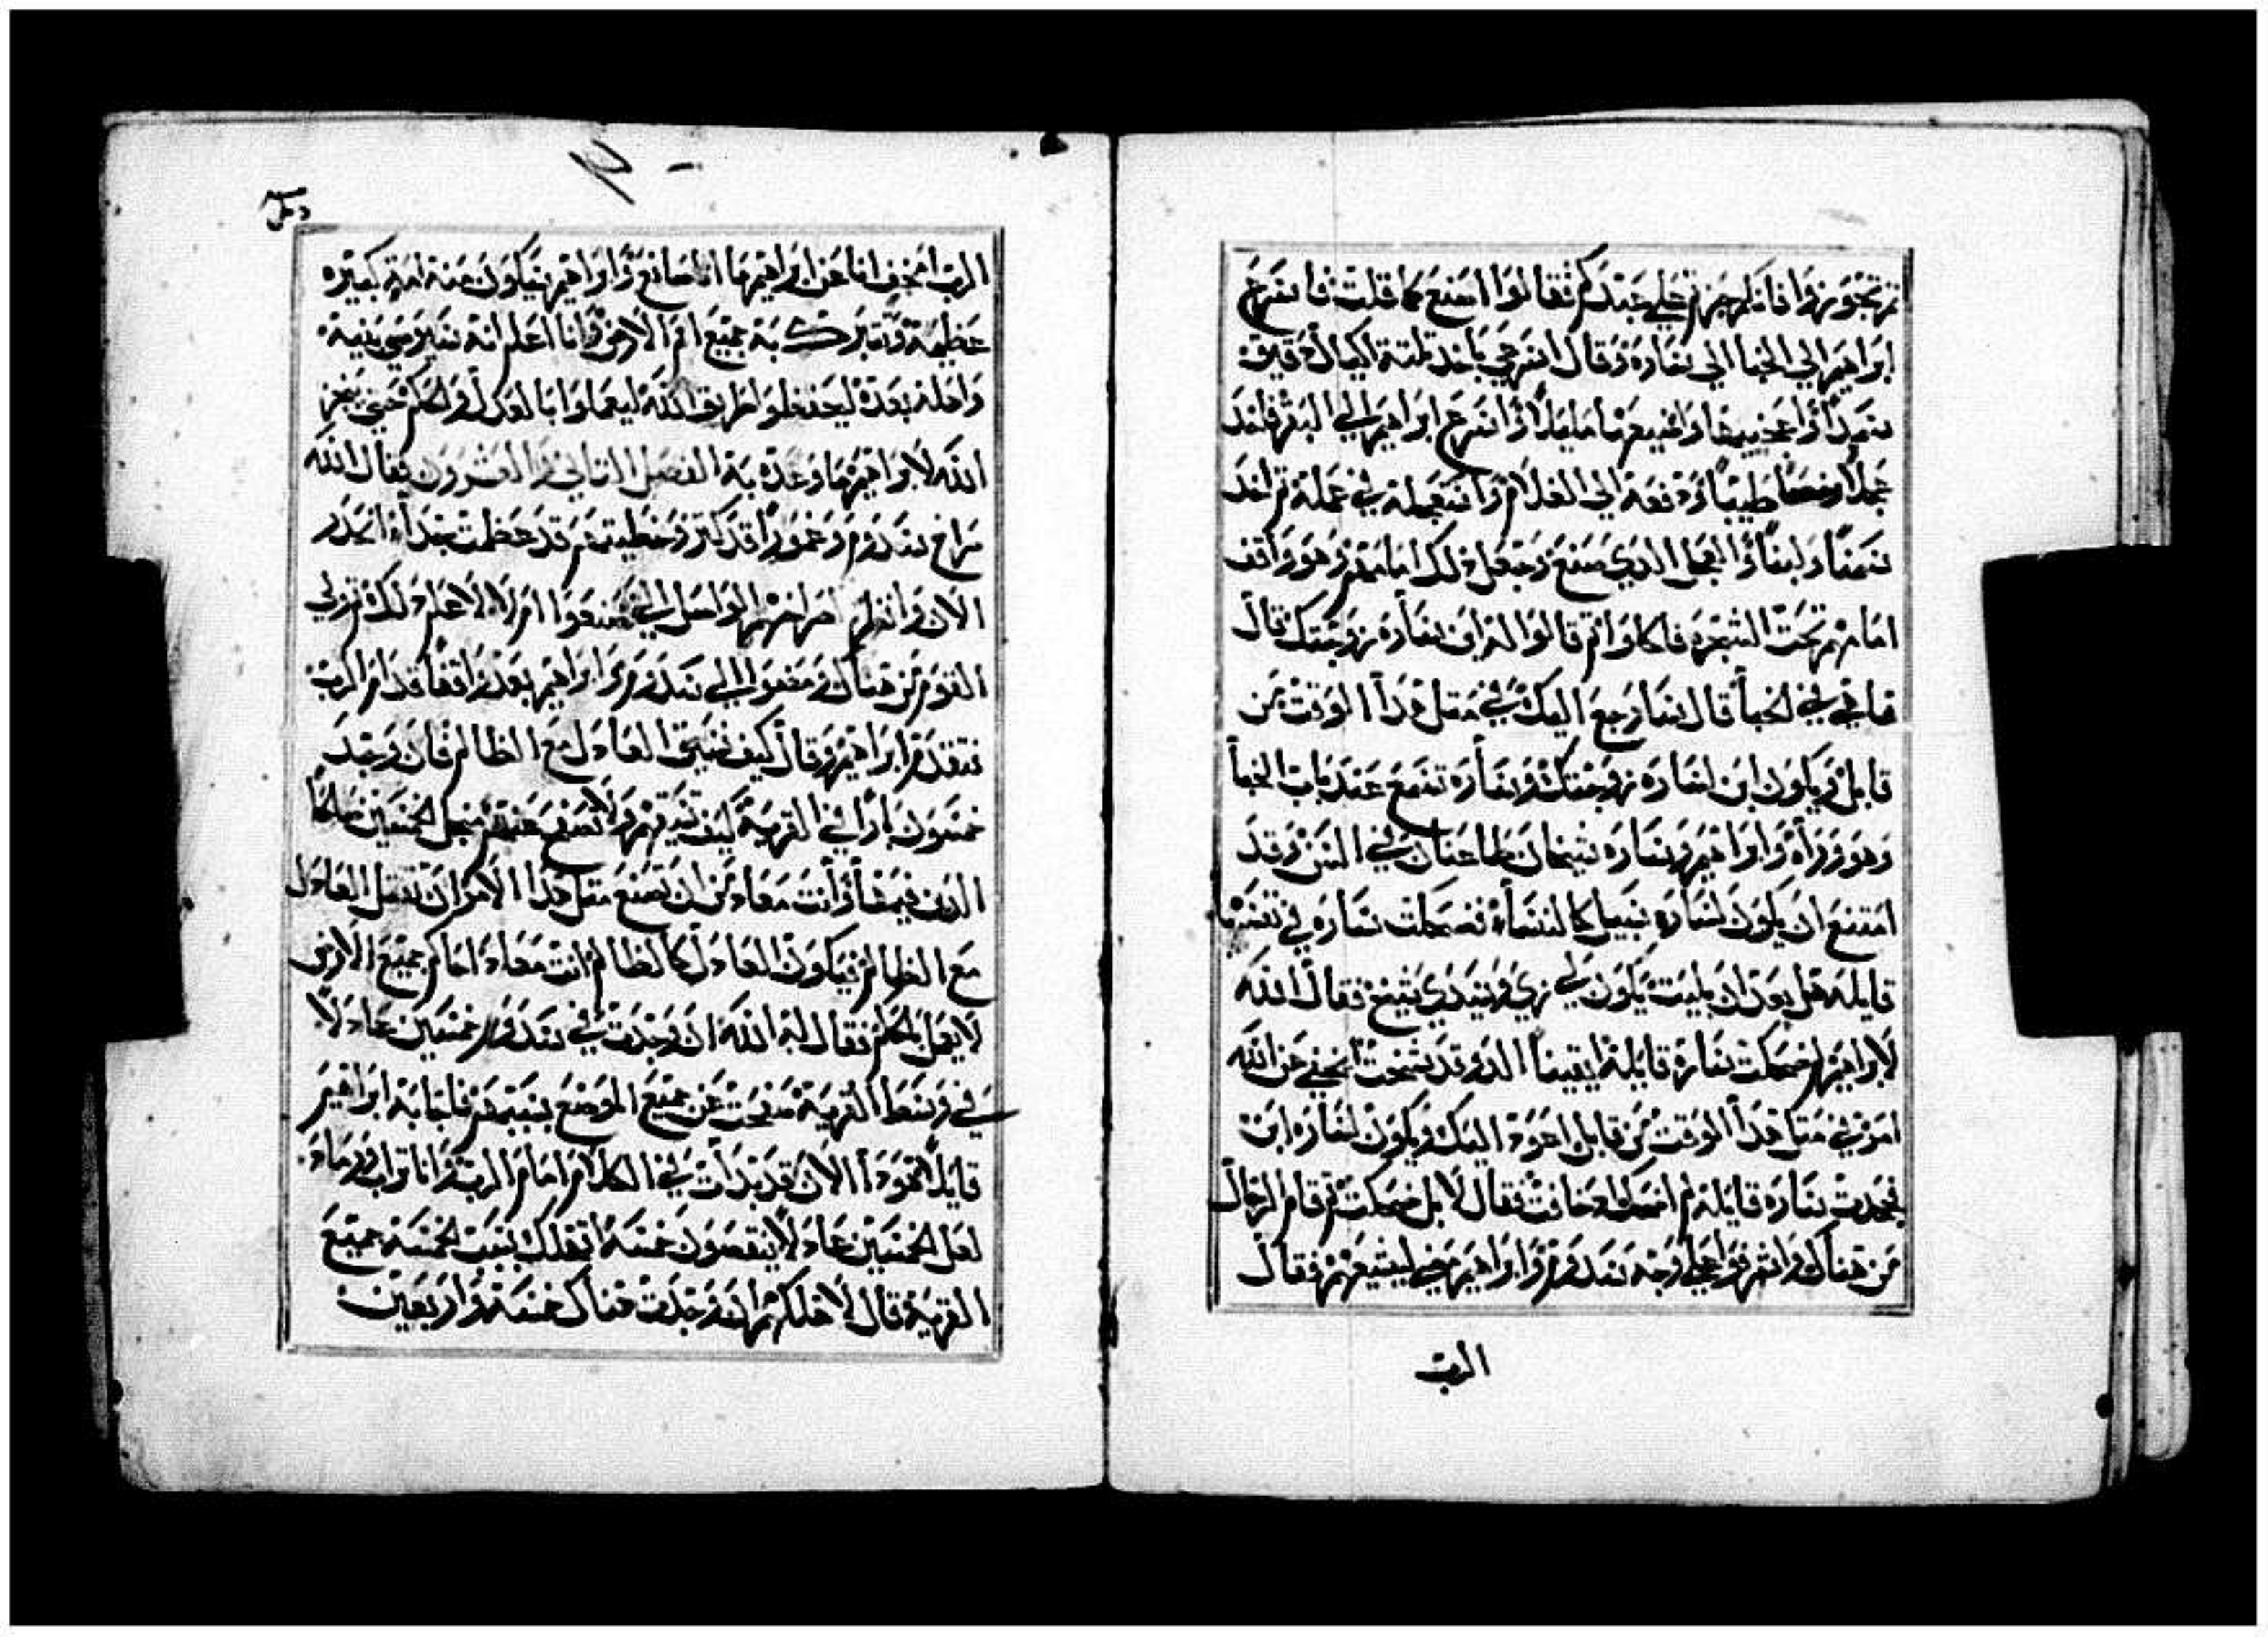 ثم تجوزوا فانكم جزتم علي عبدكم فقالوا اصنع كما قلت فاسرع
ابراهيم الي الخبا الي ساره وقال اسرعي باخذ ثلثة اكيال دقيق
سميدًا واعجنيها واصنيعها مليلاً واسرع ابراهيم الي البقر فاخذ
عجلاً رخصًا طيبًا ودفعه الي الغلام واستعجله في عمله ثم اخذ
سمنًا ولبنًا والعجل الذي صنع وجعل ذلك امامهم وهو واقف
امامهم تحت الشجره فاكلوا ثم قالوا له اين ساره زوجتك قال
هاهي في الخبأ قال سارجع اليك في مثل هذا الوقت من
قابل ويكون ابن لساره زوجتك وساره تسمع عند باب الخبأ
وهو وراه وابراهيم وساره شيخان طاعنان في السن وقد
امتنع ان يكون لساره سبيل كالنسأ فضحكت ساره في نفسها
قايله هل بعد ان بليت يكون لي زي وسيدي شيخ فقال الله
لابراهيم لم ضحكت ساره قايله ايقينا الد وقد شخت ايخفي عن الله
امر في مثل هذا الوقت من قابل اعود اليك ويكون لساره ابن
فجحدت ساره قايله لم اضحك لمخافت فقال لا بل ضحكت ثم قام الرجال
من هناك واشرفوا علي وجه سدوم وابراهيم مضي ليشيعهم فقال
الرب
الرب امخف انا عن ابراهيم ما انا صانع وابراهيم سيكون منه امة كبيره
عظيمة وتتبرك به جميع امم الارض وانا اعلم انه سيوصي بنيه
واهله بعده ليحفظوا طريق الله ليعملوا بالعدل والحكم حتي ينجز
الله لابراهيم ما وعده به الفصل الثاني والعشرون فقال الله
صراخ سدوم وعمورا قد كثر وخطيتهم قد عظمت جدأ انحدر
الان وانظر صراخهم الواصل الي صنعوا ام لا لاعلم ذلك ثم ولي
القوم من هناك ومضوا الي سدوم وابراهيم بعد واقفًا قدام الرب
فتقدم ابراهيم وقال كيف تفني العادل مع الظالم فان وجد
خمسون بارًا في القرية كيف تبيدهم ولا تصفح عنهم من اجل الخمسين صالحًا
الذين فيها وأنت معاد من ان تصنع مثل هذا الامر ان تقتل العادل
مع الظالم فيكون العادل كالظالم انت معاد احاكم جميع الارض
لا يعمل بالحكم فقال له الله ان وجدت في سدوم خمسين عادلا
في وسط القرية صفحت عن جميع الموضع بسببهم فاجابه ابراهيم
قايلاً هوذا الان قد بدأت في الكلام امام الرب وانا تراب ورماد
لعل الخمسين عادلاً ينقصون خمسه اتهلك بسبب الخمسه جميع
القرية قال لا اهلكهم ان وجدت هناك خمسة واربعين